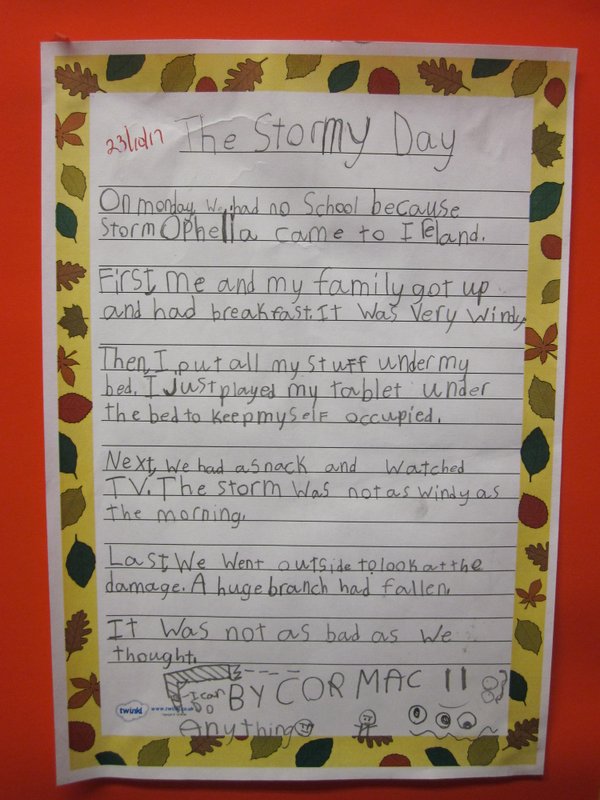 23/10/17
The Stormy Day
On monday, We had no School because
Storm Ophelia came to IReland.
First, Me and my family got up
and had breakfast. It was very windy.
Then, I put all my stuff under my
bed. I Just played my tablet under
the bed to keep myself occupied.
Next, we had a snack and watched
TV. The storm was not as windy as
the morning.
Last we went outside to look at the
damage. A huge branch had fallen.
It was not as bad as we
thought.
BY CORMAC
I can
DO
Anything
twinkl